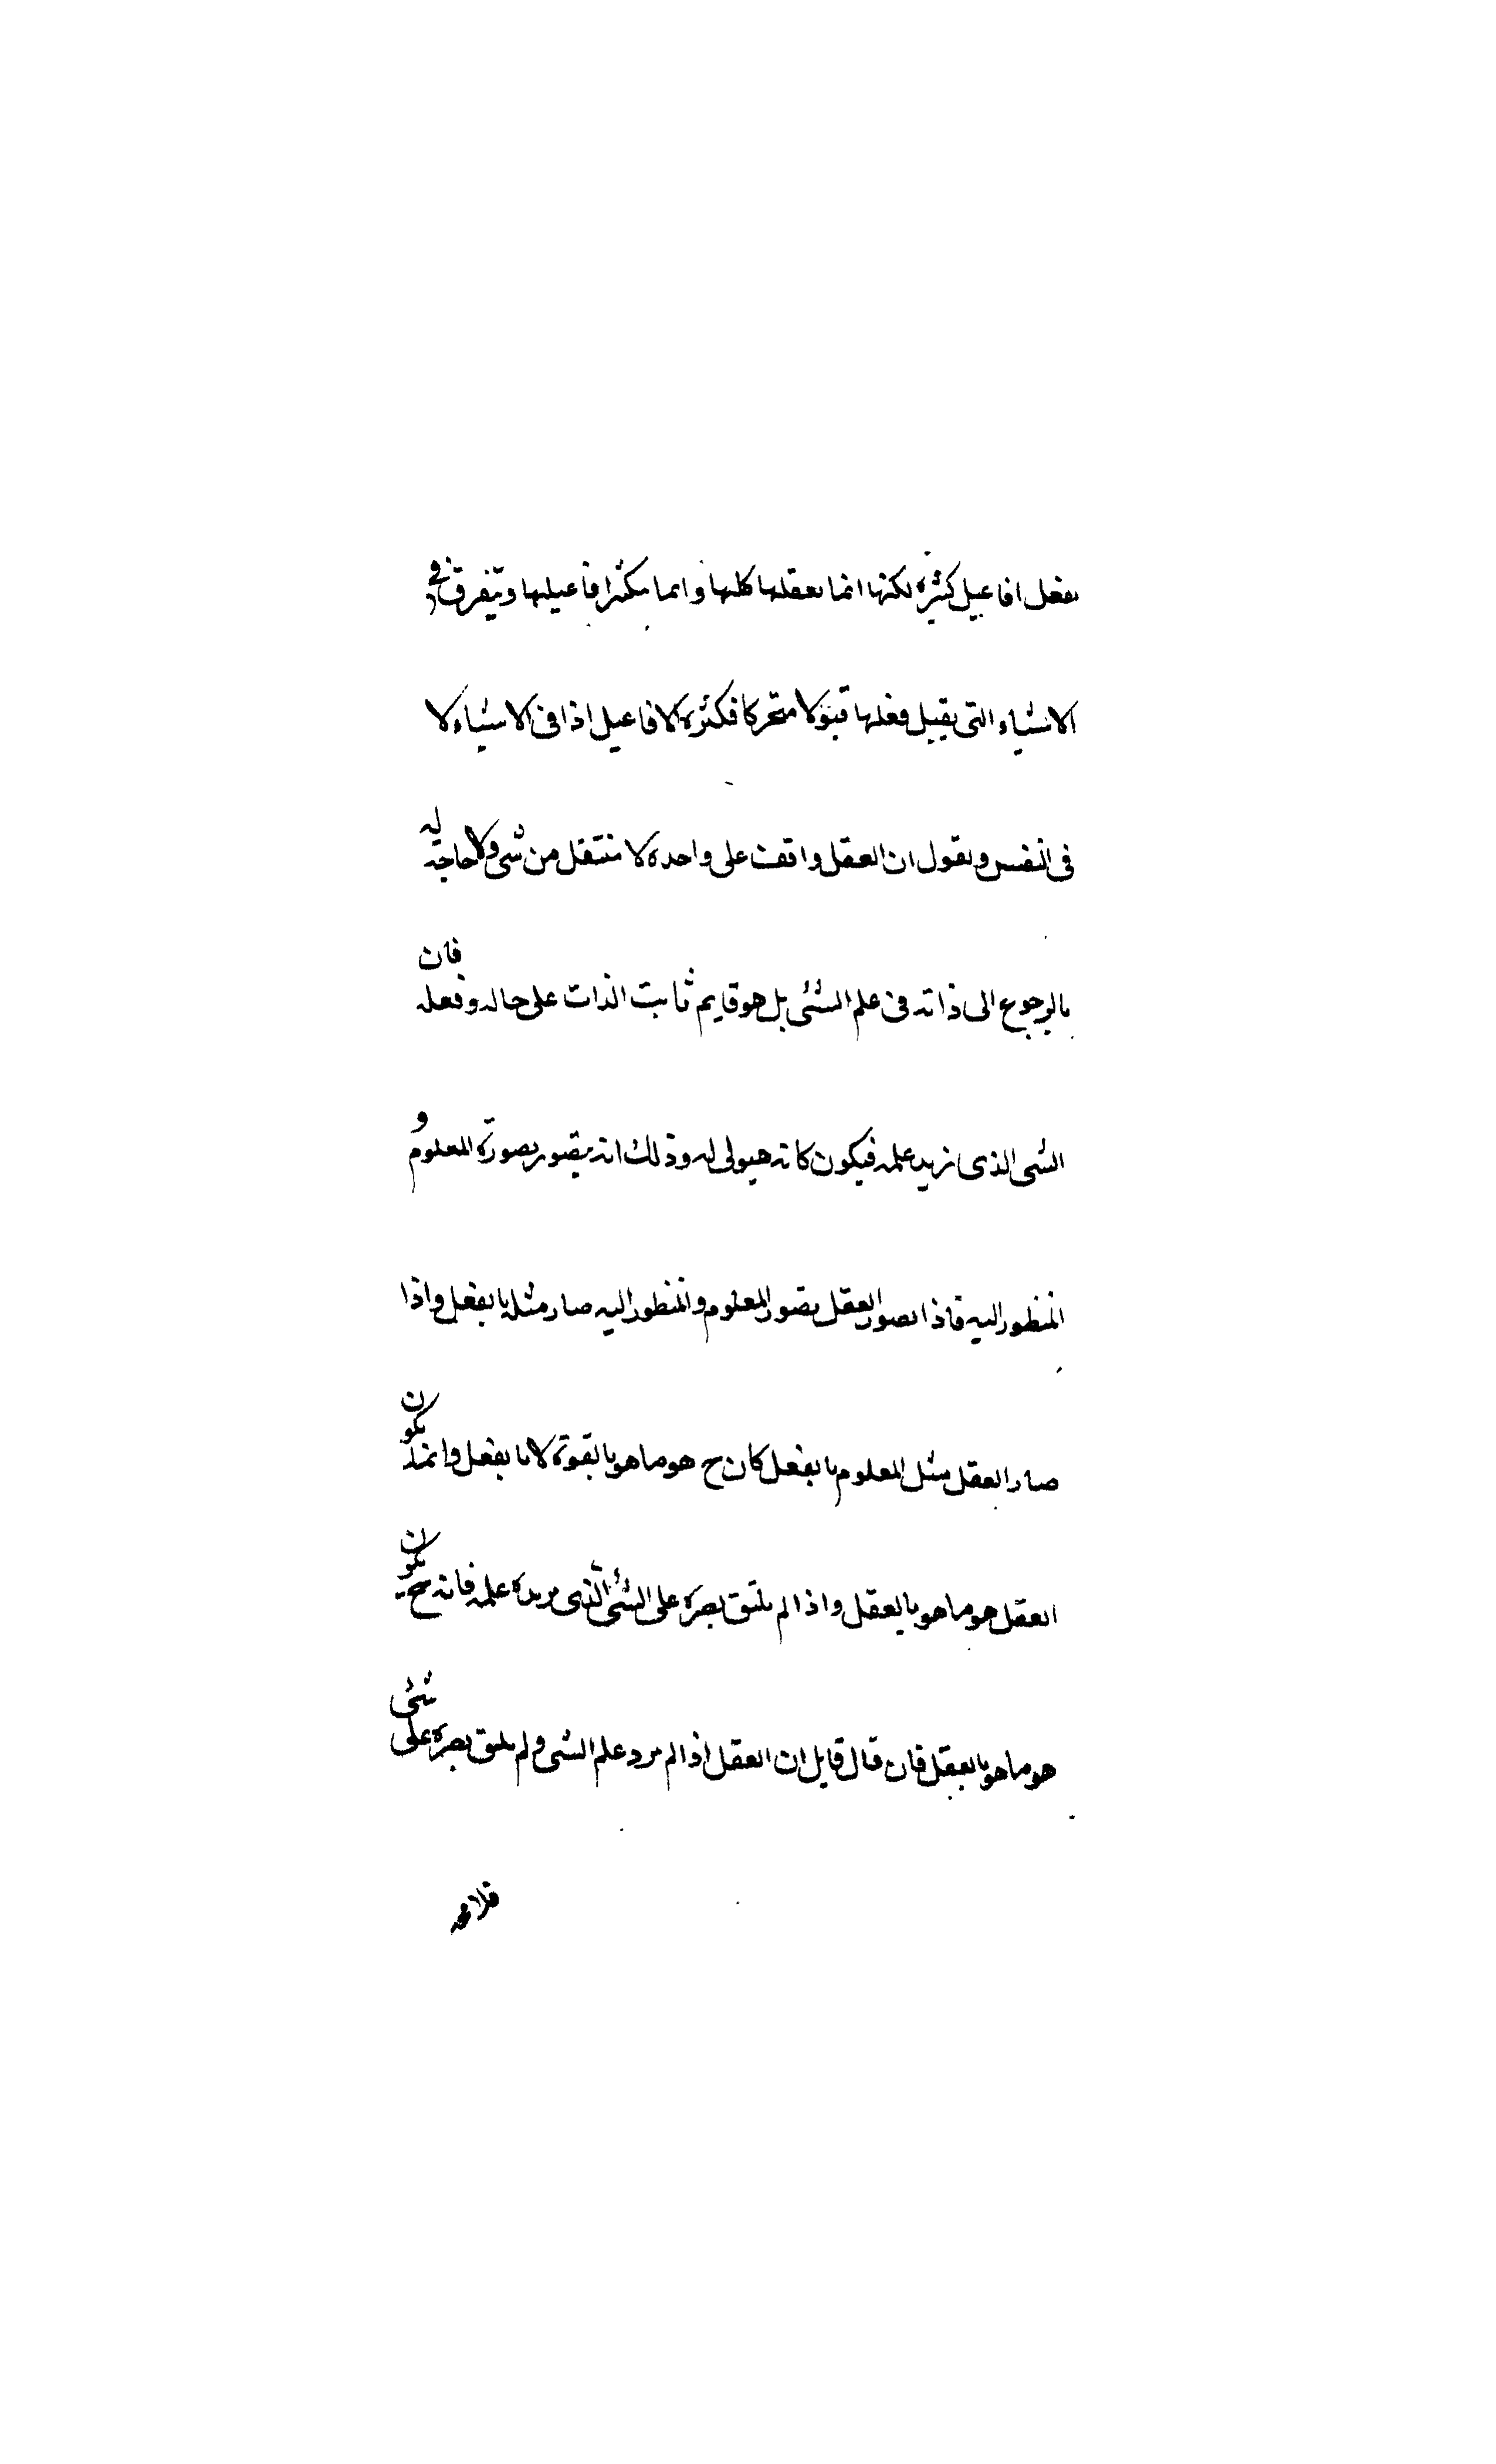 يفعل افاعيل كثيرة لكنها انما يعقلها كلها وانما يتكثر افاعيلها ويتفرق فى
الاشياء التى يقبل فعلها قبولا متحركا فكثرة الافاعيل اذا فى الاشياء لا
فى النفس ونقول ان العقل واقف على واحده لا منتقل من شى ولا حاجة له
بالرجوع الى ذاته فى علم الشئى بل هو قايم ثابت الذات على حاله وفعله فان
الشى الذى نريد علمه فيكون كانه هيولى له وذلك انه يتصور بصورة المعلوم و
المنظور اليه فاذا تصور العقل بصور المعلوم والمنظور اليه صار مثله بالفعل واذا
صار العقل مثل المعلوم بالفعل كان ح هو ما هو بالقوة لا بالفعل وانما يكون
العقل هو ما هو بالعقل واذا لم يلق بصره على الشئى الذى يريده علمه فانه ح يكون
هو ما هو بالعقل فان قال قايل ان العقل اذا لم يرد علم الشى ولم يلق بصره على شئى